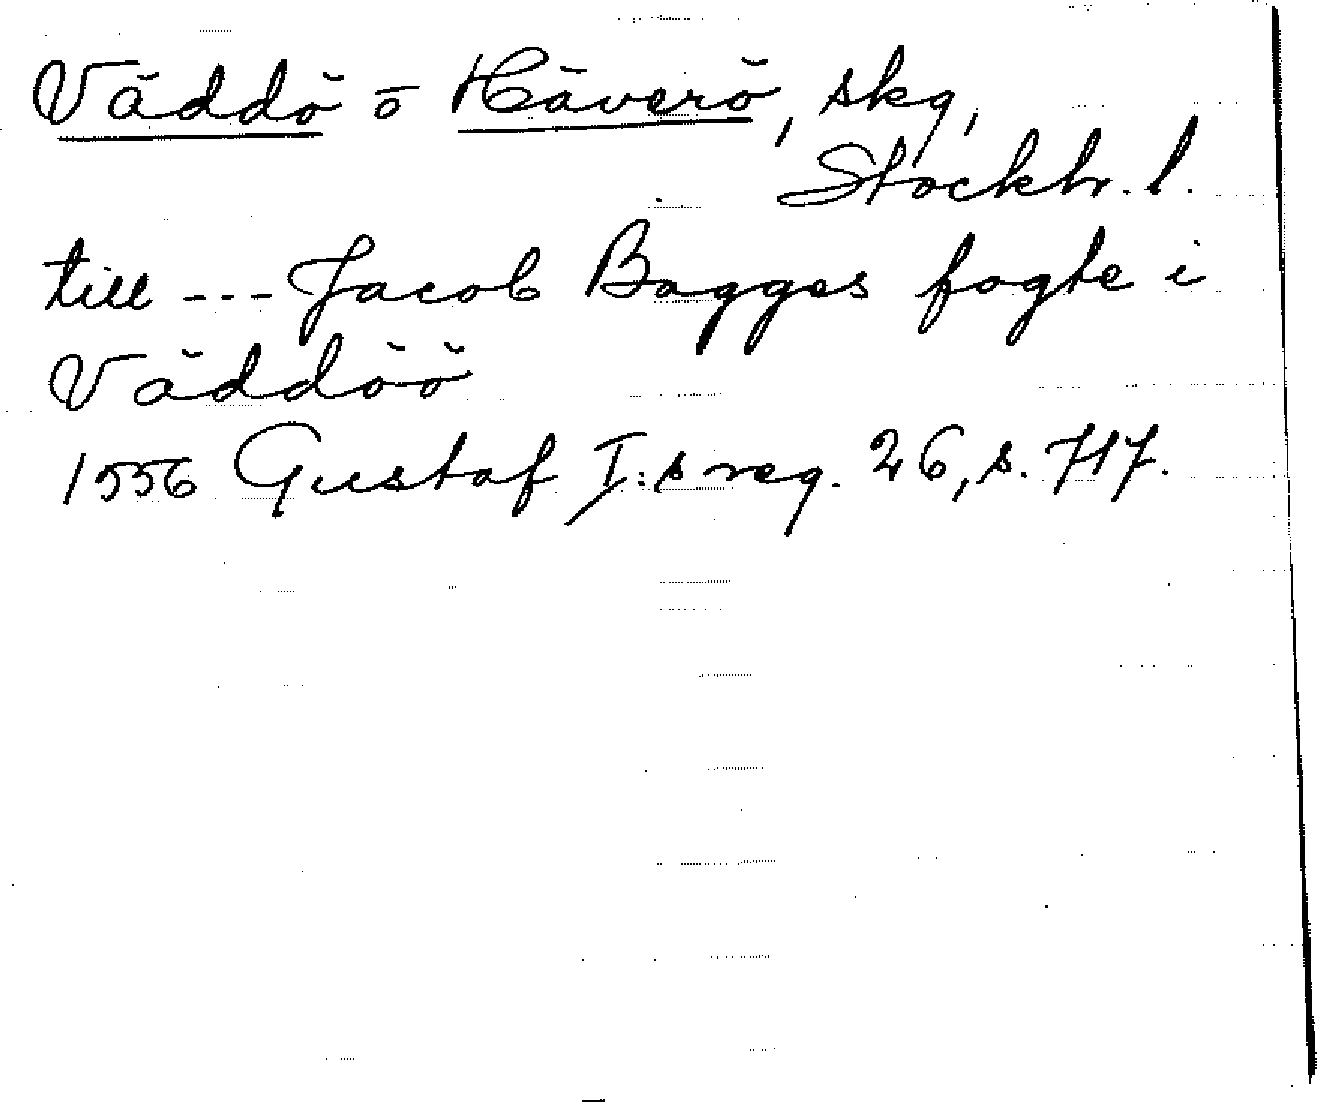 Väddö o Häverö, skg,
Stockh. l.
till --- Jacob Bagges fogte i
Väddöö
1556 Gustaf I:s reg. 26, s. 717.